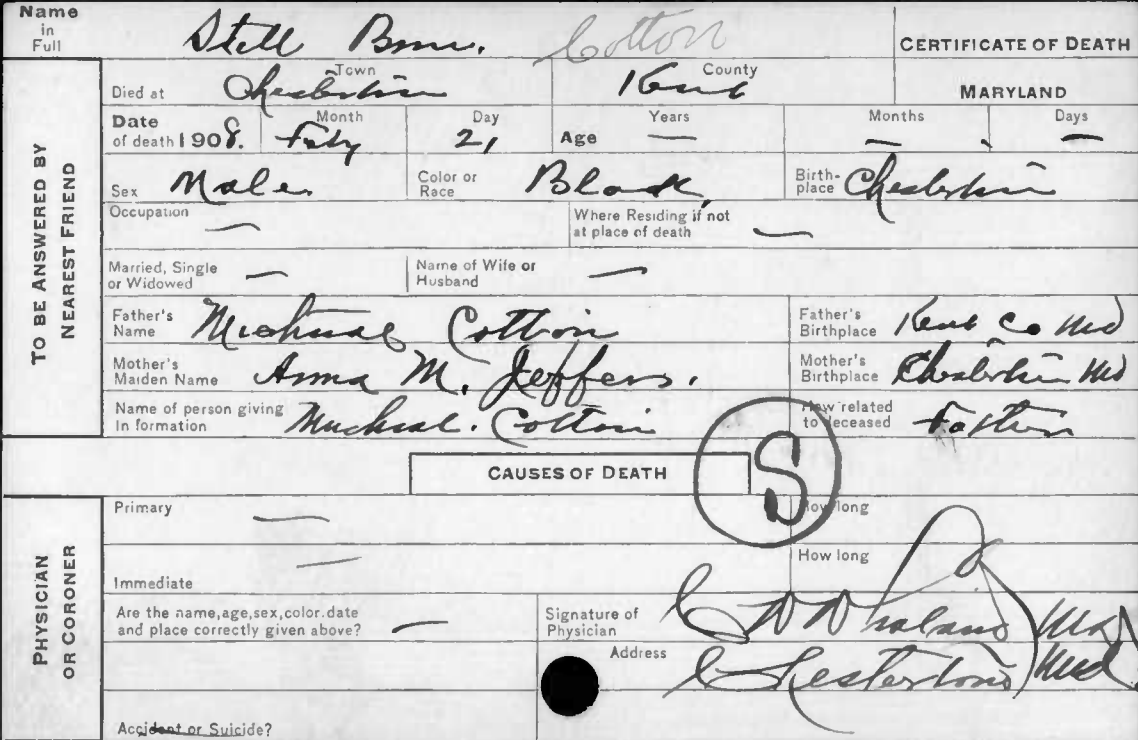 Name in Full Still Born. Cotton CERTIFICATE OF DEATH
TO BE ANSWERED BY NEAREST FRIEND
Died at Chestertown Town Kent County MARYLAND
Date of death 1908. Month Feby Day 21 Age Years — Months — Days —
Sex Male. Color or Race Black Birth-place Chestertown
Occupation — Where Residing if not at place of death —
Married, Single or Widowed — Name of Wife or Husband —
Father's Name Michael Cotton Father's Birthplace Kent Co Md
Mother's Maiden Name Anna M. Jeffers. Mother's Birthplace Chestertown Md
Name of person giving In formation Michael. Cotton How related to deceased Father
CAUSES OF DEATH S
PHYSICIAN OR CORONER
Primary — How long
Immediate — How long
Are the name, age, sex, color. date and place correctly given above? — Signature of Physician Whaland Md
Address Chestertown Md.
Accident or Suicide?